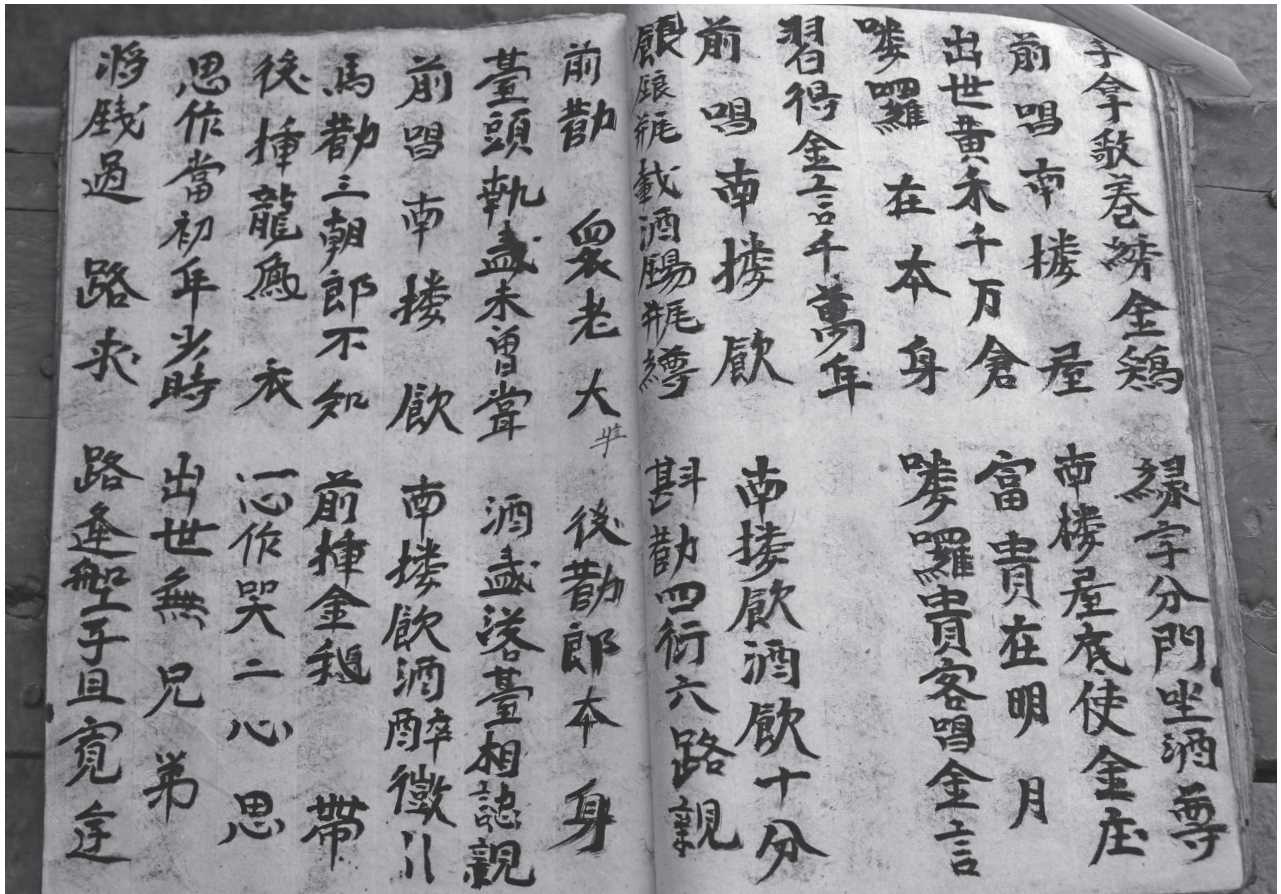 手拿敬卷綉金鷄 緣字分門坐酒尊
前唱南搂屋 南楼屋底使金庄
出世黄禾千万倉 富貴在明月
嘍囉在本身 嘍囉貴客唱金言
習得金言千萬年
前唱南搂飲 南搂飲酒飲十分
瓶載酒賜瓶罇 斟勸四衍六路親
前勸衆老大 後勸郎本身
臺頭執盞未曾嘗 酒盞落臺相認親
前唱南搂飲 南搂飲酒醉微
馬勸三朝郎不知 前揷金鵝帶
後揷龍鳳衣 一心作哭二心思
思作當初年少時 出世無兄弟
將錢過路求 路逢子且寬